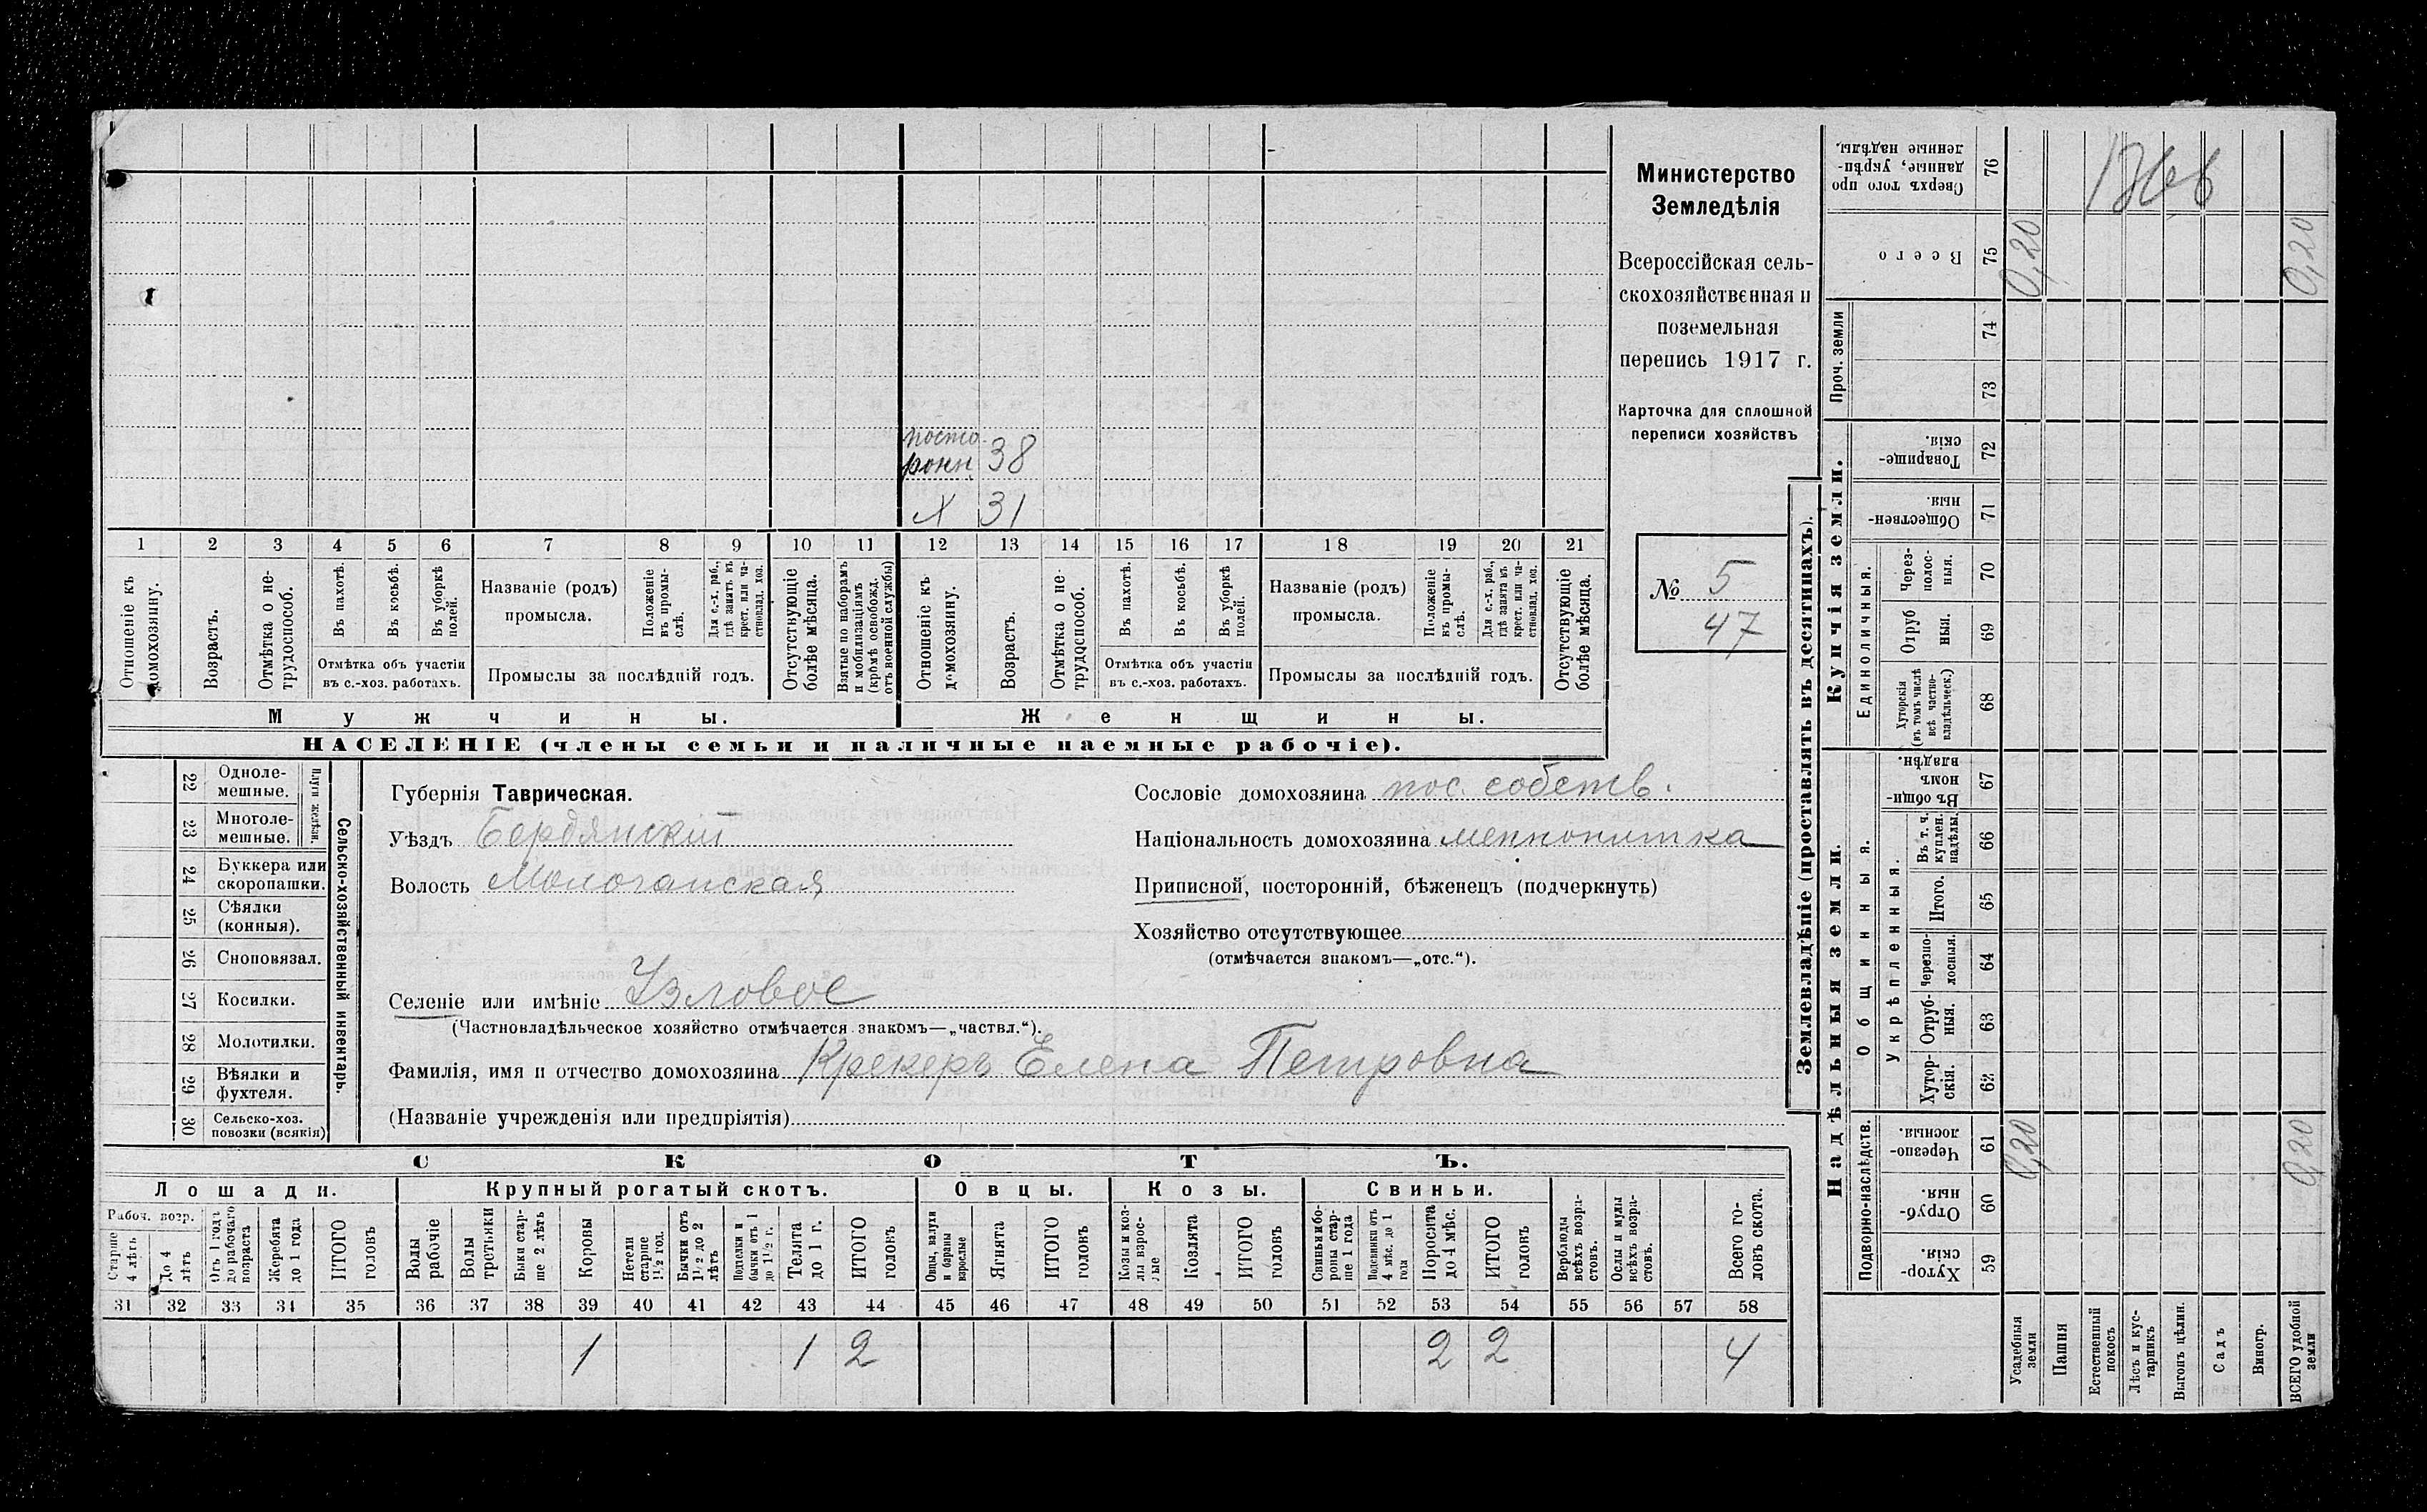 Министерство
Земледѣлія
Всероссійская сель-
скохозяйственная и
поземельная
перепись 1917 г.
Карточка для сплошной
переписи хозяйствъ
№ 5
47
посто
ронн 38
X 31
1 2 3 4 5 6 7 8 9 10 11 12 13 14 15 16 17 18 19 20 21
Отношеніе къ домохозяину.
Возрастъ.
Отмѣтка о не-трудоспособ.
Въ пахотѣ.
Въ косьбѣ.
Въ уборкѣ полей.
Отмѣтка объ участіи
въ с.-хоз. работахъ.
Названіе (родъ)
промысла.
Положеніе въ промы-слѣ.
Для с.-х. раб., гдѣ занятъ въ крест. или ча-стновлад. хоз.
Промыслы за послѣдній годъ.
Отсутствующіе болѣе мѣсяца.
Взятые по наборамъ и мобилизаціямъ (кромѣ освобожд. отъ военной службы)
Отношеніе къ домохозяину.
Возрастъ.
Отмѣтка о не-трудоспособ.
Въ пахотѣ.
Въ косьбѣ.
Въ уборкѣ полей.
Отмѣтка объ участіи
въ с.-хоз. работахъ.
Названіе (родъ)
промысла.
Положеніе въ промы-слѣ.
Для с.-х. раб., гдѣ занята въ крест. или ча-стновлад. хоз.
Промыслы за послѣдній годъ.
Отсутствующіе болѣе мѣсяца.
Мужчины.
Женщины.
НАСЕЛЕНІЕ (члены семьи и наличные наемные рабочіе).
22 Одноле-мешные.
23 Многоле-мешные.
Плуги желѣзн.
24 Буккера или скоропашки.
25 Сѣялки (конныя).
26 Сноповязал.
27 Косилки.
28 Молотилки.
29 Вѣялки и фухтеля.
30 Сельско-хоз. повозки (всякія)
Сельско-хозяйственный инвентарь.
Губернія Таврическая.
Уѣздъ Бердянскій
Волость Молочанская
Сословіе домохозяина пос. собств.
Національность домохозяина меннонитка
Приписной, посторонній, бѣженецъ (подчеркнуть)
Хозяйство отсутствующее
(отмѣчается знакомъ—„отс.“).
Селеніе или имѣніе Узловое
(Частновладѣльческое хозяйство отмѣчается знакомъ—„частвл.“).
Фамилія, имя и отчество домохозяина Крекеръ Елена Петровна
(Названіе учрежденія или предпріятія)
СКОТЪ.
Лошади.
Крупный рогатый скотъ.
Овцы.
Козы.
Свиньи.
Рабоч. возр.
Старше 4 лѣтъ
До 4 лѣтъ
Отъ 1 года до рабочаго возраста
Жеребята до 1 года
ИТОГО головъ
Волы рабочіе
Волы третьяки
Быки стар-ше 2 лѣтъ
Коровы
Нетели старше 1½ год.
Бычки отъ 1½ до 2 лѣтъ
Подтелки и бычки отъ 1 до 1½ г.
Телята до 1 г.
ИТОГО головъ
Овцы, валухи и бараны взрослые
Ягнята
ИТОГО головъ
Козы и коз-лы взрос-лые
Козлята
ИТОГО головъ
Свиньи и бо-ровы стар-ше 1 года
Подсвинки отъ 4 мѣс. до 1 года
Поросята до 4 мѣс.
ИТОГО головъ
Верблюды всѣхъ возра-стовъ.
Ослы и мулы всѣхъ возра-стовъ.
Всего го-ловъ скота.
31 32 33 34 35 36 37 38 39 40 41 42 43 44 45 46 47 48 49 50 51 52 53 54 55 56 57 58
1 1 2 2 2 4
Землевладѣніе (проставлять въ десятинахъ).
Купчія земли.
Надѣльныя земли.
Сверхъ того про-данные, укрѣп-ленные надѣлы. 76
Всего 75 0,20 0,20
Проч. земли
74
73
Товарище-скія. 72
Обществен-ныя. 71
Единоличныя.
Через-полос-ныя. 70
Отруб ныя. 69
Хуторскія (въ томъ числѣ всѣ частно-владѣльческ.) 68
Общинныя.
Въ общи номъ владѣн. 67
Укрѣпленныя.
Въ т. ч. куплен. надѣлы. 66
Итого. 65
Черезпо-лосныя. 64
Отруб-ныя. 63
Хутор-скія. 62
Подворно-наслѣдств.
Черезпо-лосныя. 61 0,20 0,20
Отруб-ныя. 60
Хутор-скія. 59
Усадебныя земли
Пашня
Естественный покосъ
Лѣсъ и кус-тарникъ
Выгонъ цѣлин.
Садъ
Виногр.
ВСЕГО удобной земли